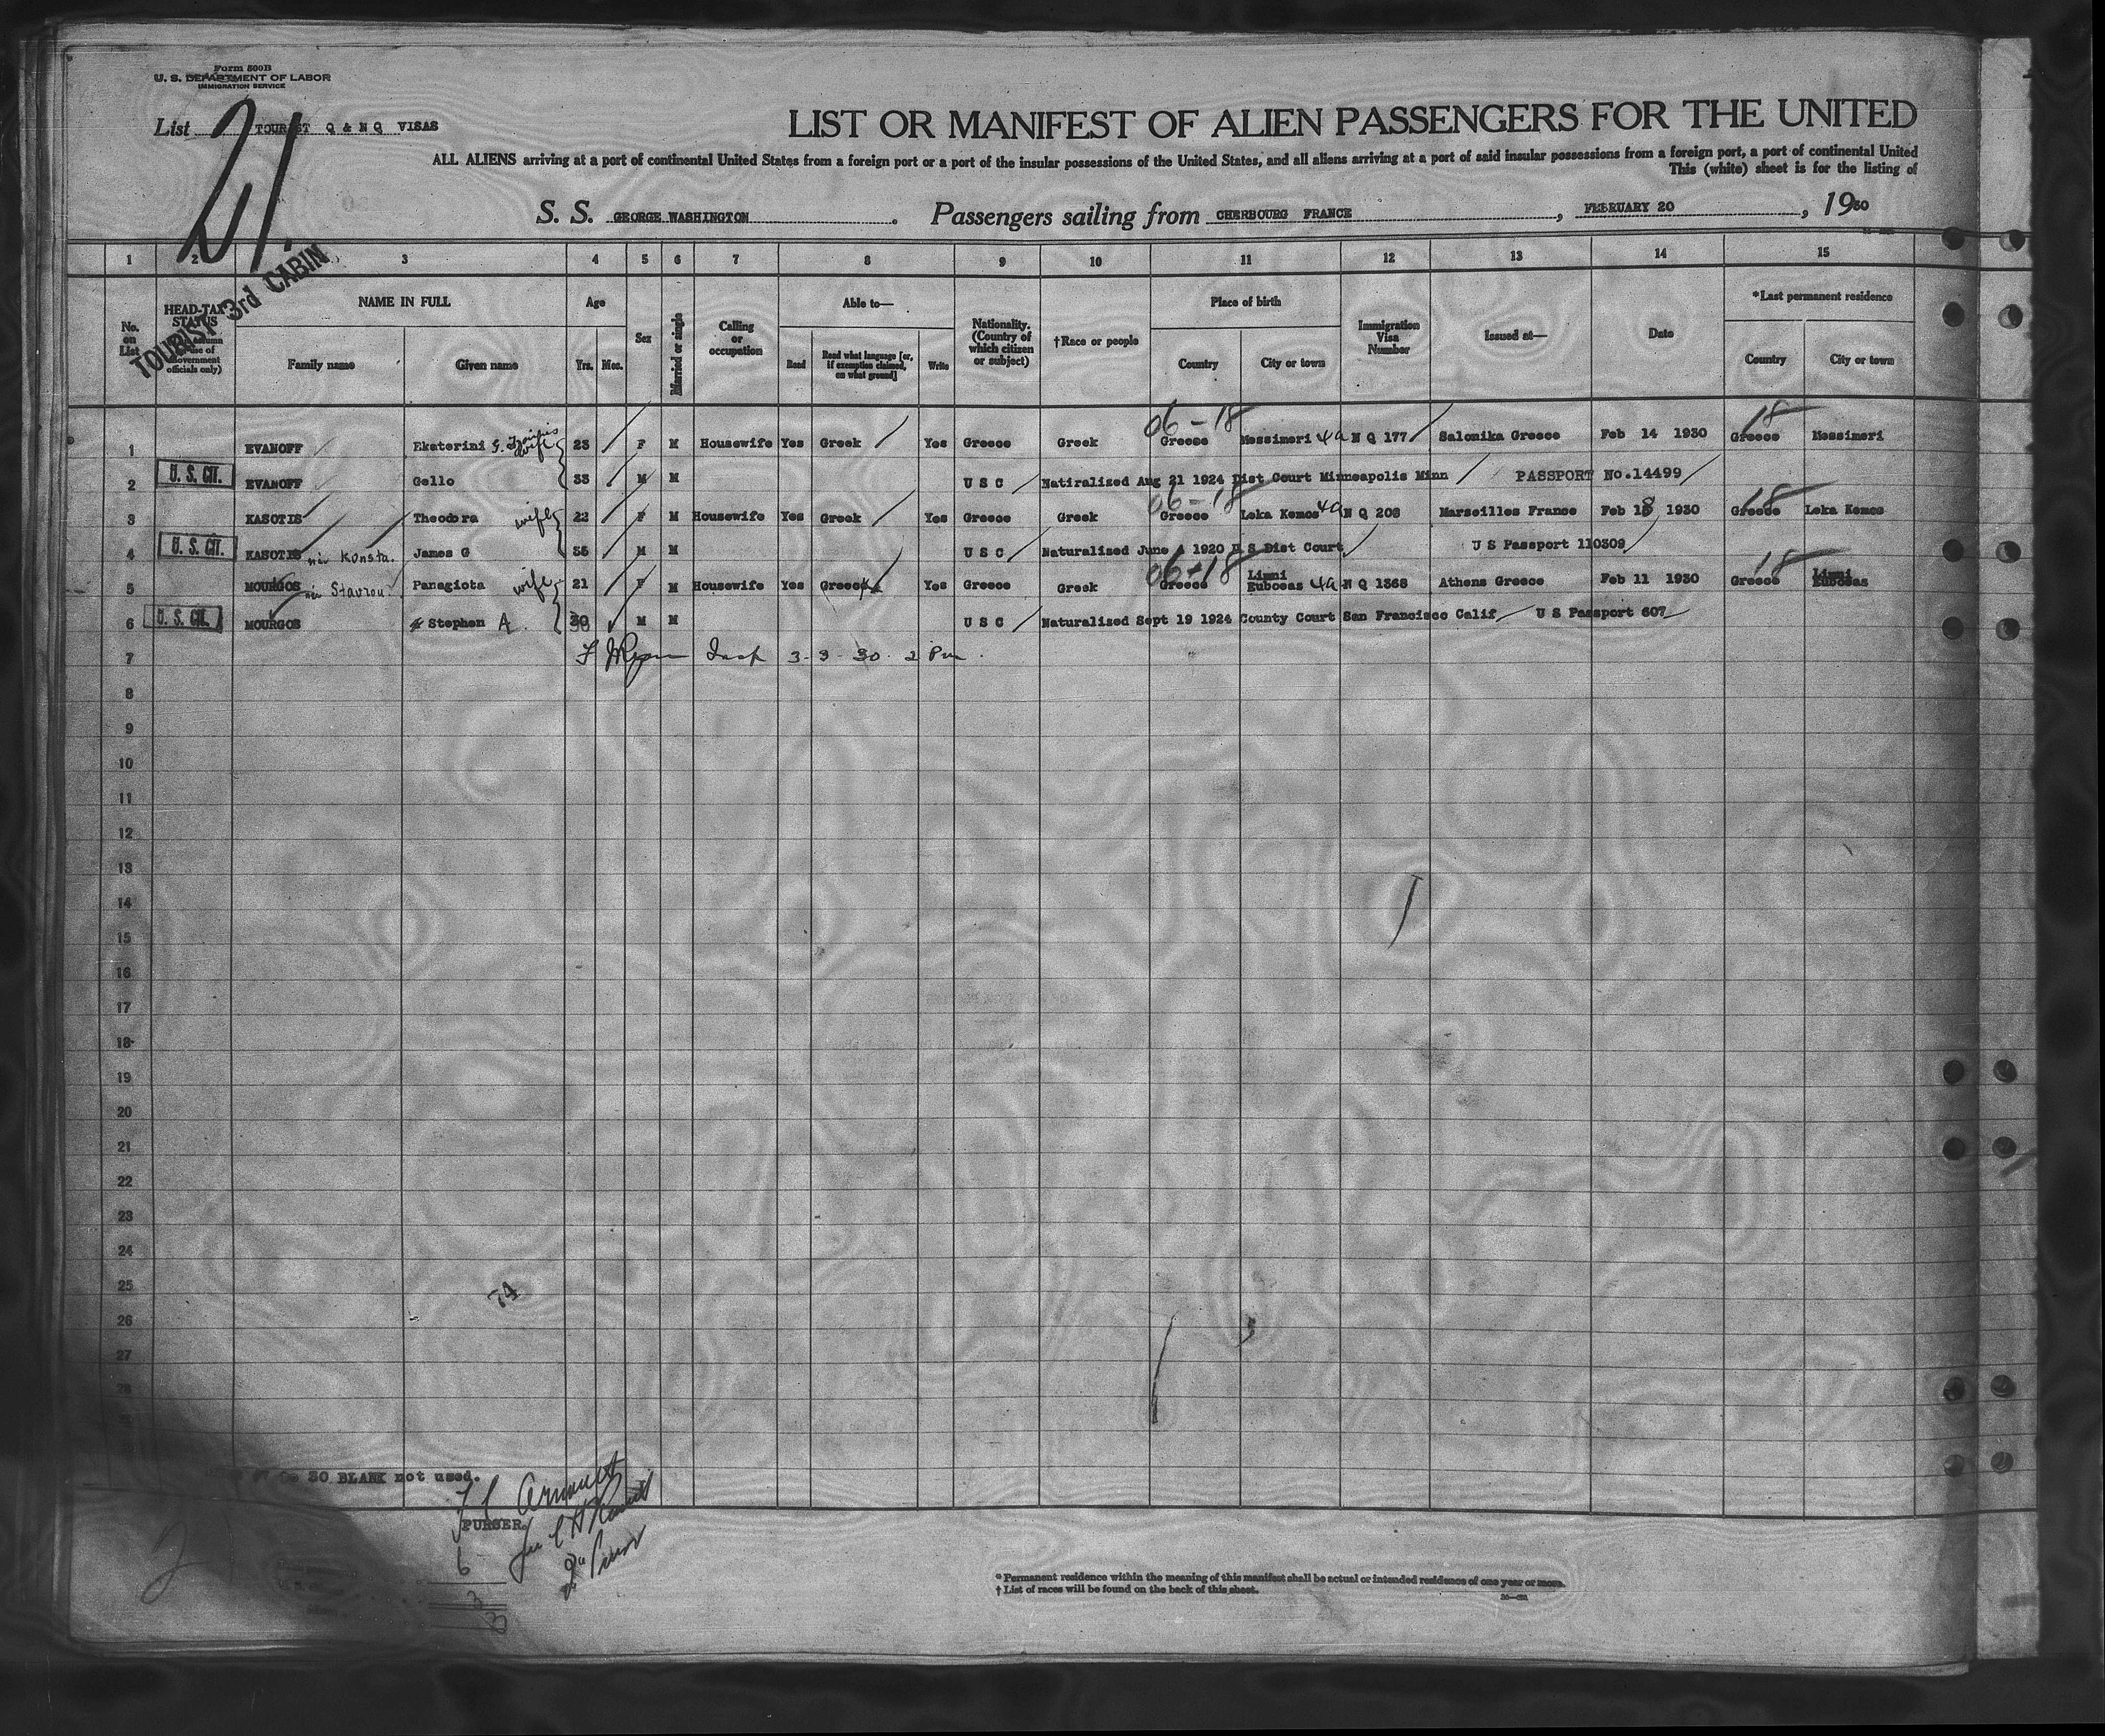 Form 500B
U. S. DEPARTMENT OF LABOR
IMMIGRATION SERVICE
List TOURIST Q & N Q VISAS
21
TOURIST 3rd CABIN
LIST OR MANIFEST OF ALIEN PASSENGERS FOR THE UNITED
ALL ALIENS arriving at a port of continental United States from a foreign port or a port of the insular possessions of the United States, and all aliens arriving at a port of said insular possessions from a foreign port, a port of continental United
This (white) sheet is for the listing of
S. S. GEORGE WASHINGTON . Passengers sailing from CHERBOURG FRANCE , FEBRUARY 20 , 1930
1 2 3 4 5 6 7 8 9 10 11 12 13 14 15
No. on List
HEAD-TAX STATUS
officials only)
NAME IN FULL
Family name
Given name
Age
Yrs. Mos.
Sex
Married or single
Calling or occupation
Able to—
Read
Read what language [or, if exemption claimed, on what ground]
Write
Nationality. (Country of which citizen or subject)
†Race or people
Place of birth
Country
City or town
Immigration Visa Number
Issued at—
Date
*Last permanent residence
Country
City or town
1 EVANOFF Ekaterini G. wife 23 F M Housewife Yes Greek Yes Greece Greek 06-18 Greece Messimeri 4a N Q 177 Salonika Greece Feb 14 1930 18 Greece Messimeri
2 U. S. CIT. EVANOFF Gello 33 M M U S C Natiralized Aug 21 1924 Dist Court Minneapolis Minn PASSPORT No.14499
3 KASOTIS Theodora wife 22 F M Housewife Yes Greek Yes Greece Greek 06-18 Greece Leka Kemos 4a N Q 208 Marseilles France Feb 18 1930 18 Greece Leka Kemos
4 U. S. CIT. KASOTIS Konsta. James G 35 M M U S C Naturalized June 1920 U S Dist Court U S Passport 110309
5 MOURGOS Stavrou Panagiota wife 21 F M Housewife Yes Greece Yes Greece Greek 06-18 Greece Limni Euboeas 4a N Q 1368 Athens Greece Feb 11 1930 18 Greece Limni Euboeas
6 U. S. CIT. MOURGOS Stephen A. 30 M M U S C Naturalized Sept 19 1924 County Court San Francisco Calif U S Passport 607
7 F J Ryan Insp 3-3-30 2 Pm
8
9
10
11
12
13
14
15
16
17
18
19
20
21
22
23
24
25
74
26
27
28
30 BLANK not used.
PURSER.
6
3
3
* Permanent residence within the meaning of this manifest shall be actual or intended residence of one year or more.
† List of races will be found on the back of this sheet.